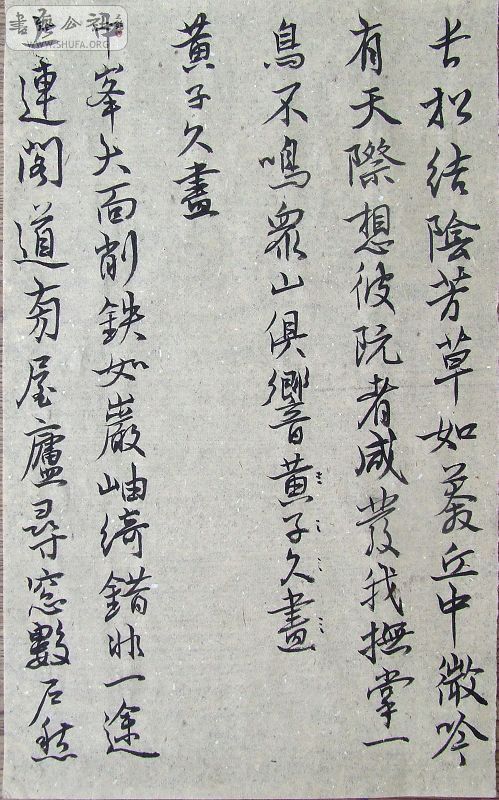 长松结陰芳草如蓀丘中微吟
有天際想彼阮者咸發我撫掌一
鳥不鳴衆山俱響黄子久畫
黄子久畫
峯大面削鉄如巖岫綺錯非一途
連閣道旁屋廬尋窓數尺愁
書法公社
WWW.SHUFA.ORG